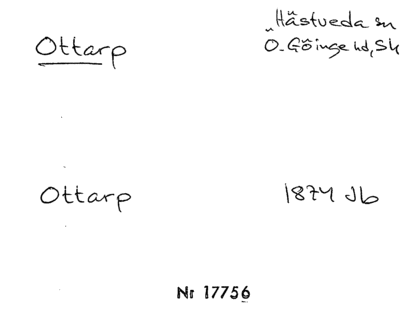 Hästveda sn
Ottarp
Ö. Göinge hd, Sk
Ottarp
1874 Jb
Nr 17756